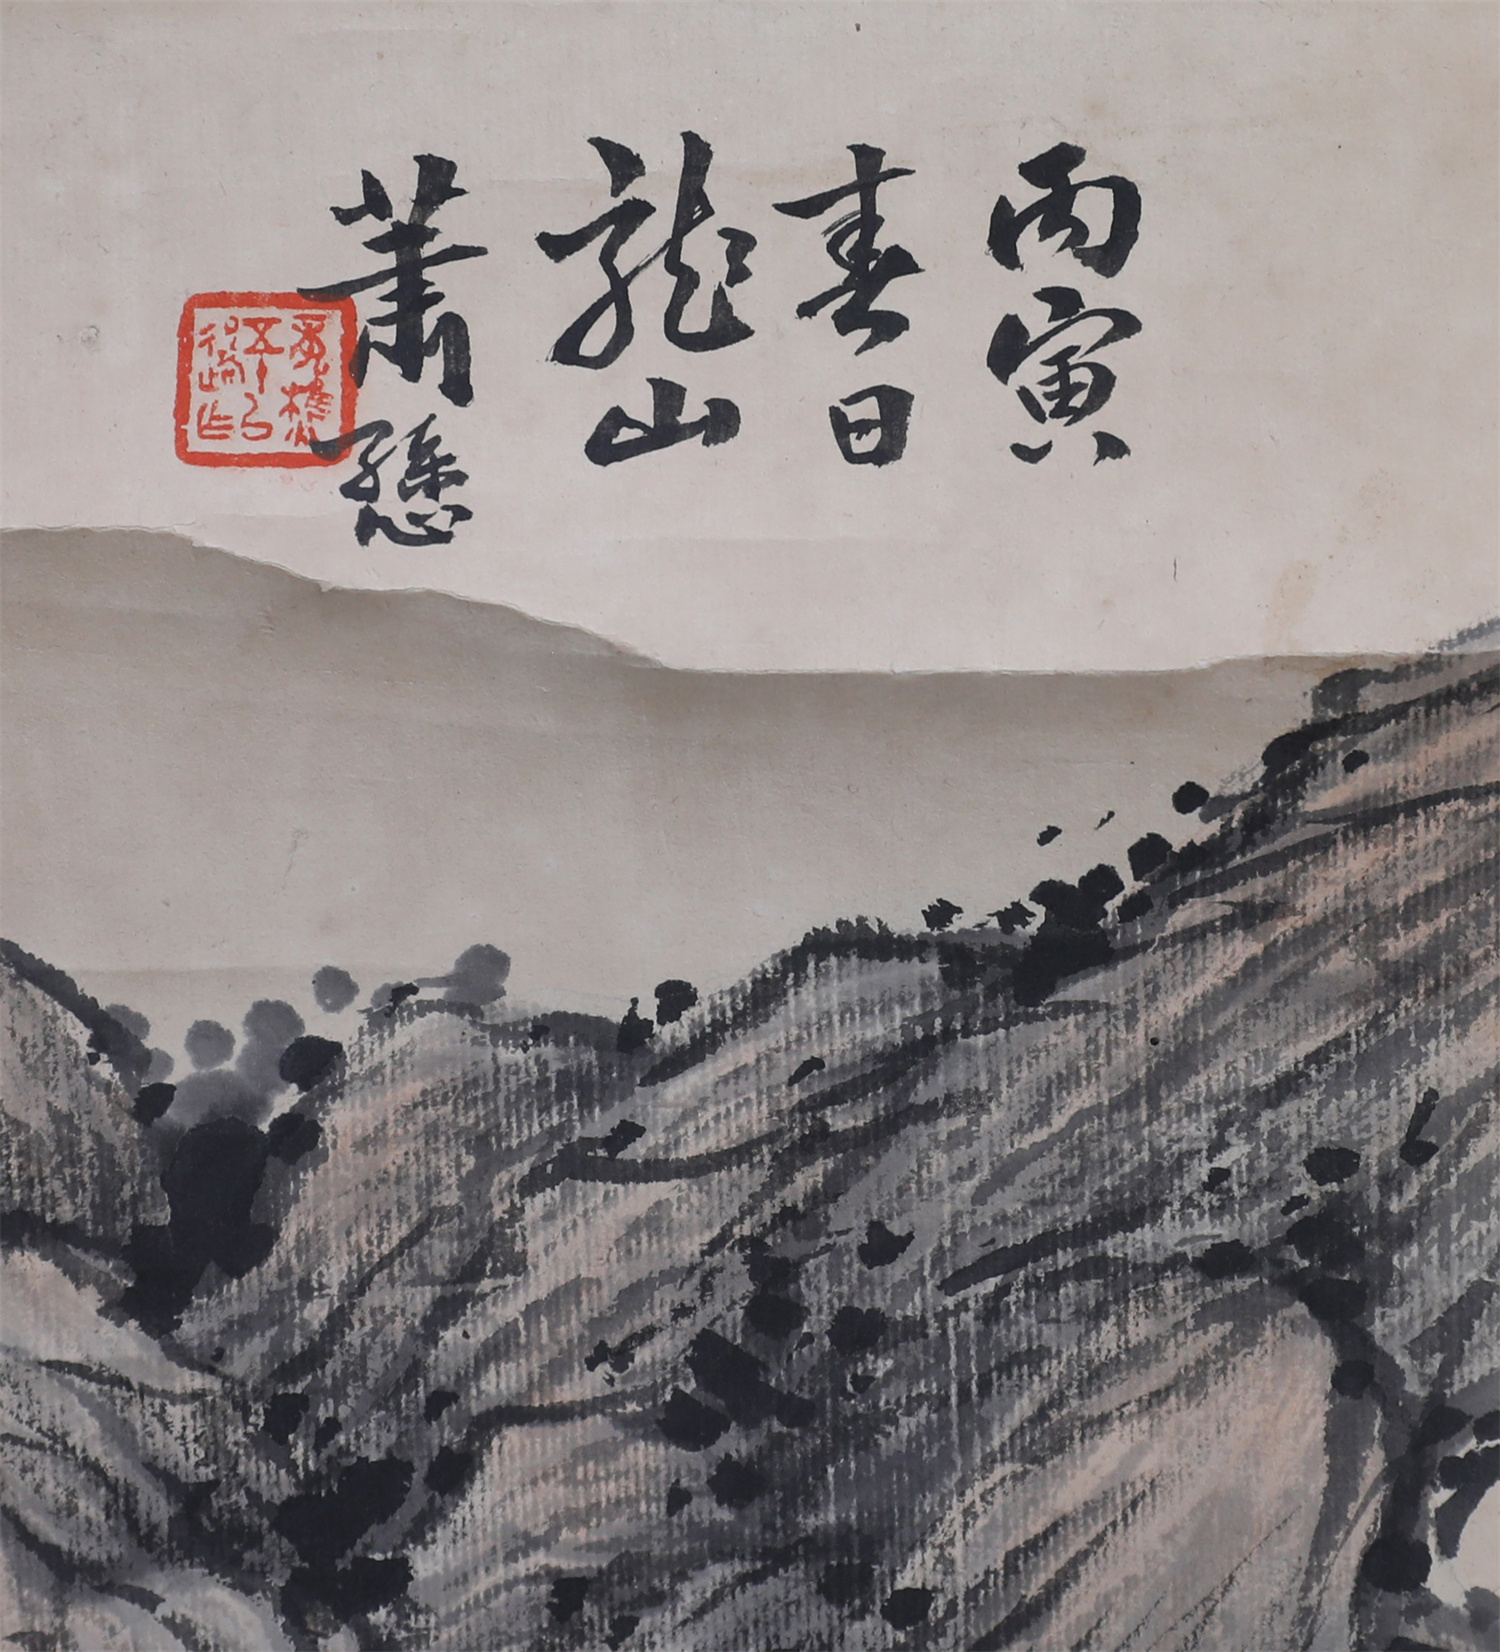 丙寅
春日
龍山
蕭愻